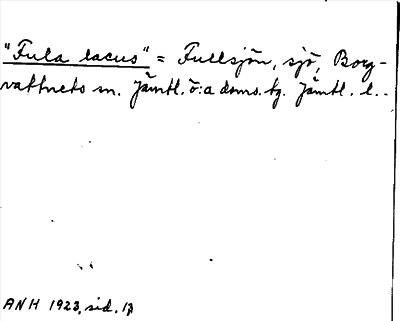 "Fula lacus" = Fullsjön, sjö, Borg-
vattnets sn. Jämtl. ö:a doms.tg. Jämtl. l..
ANH 1923, sid. 17